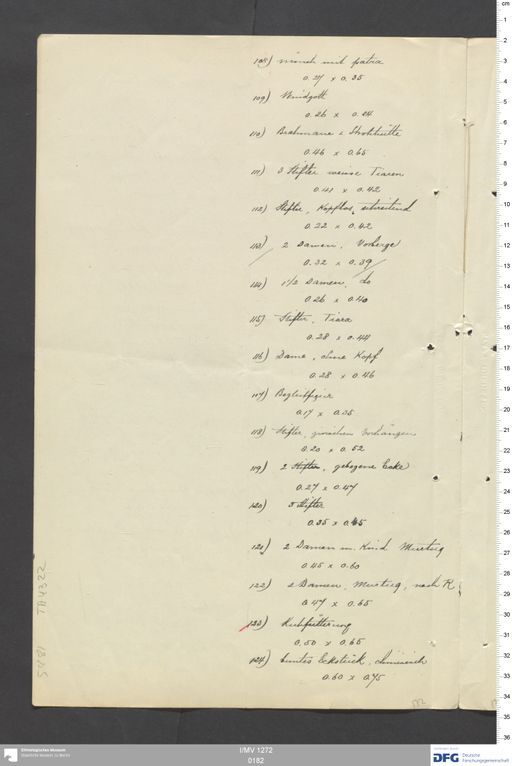 108) Mönch mit patra
0.27 x 0.35
109) Windgott
0.26 x 0.24
110) Brahmane i. Strohhütte
0.46 x 0.65
111) 3 Stifter weisse Tiaren
0.41 x 0.42
112) Stifter, Kopflos, schreitend
0.22 x 0.42
113) 2 Damen, Vorherge
0.32 x 0.39
114) 1 1/2 Damen, do
0.26 x 0.40
115) Stifter, Tiara
0.28 x 0.44
116) Dame, ohne Kopf
0.28 x 0.46
117) Begleitfigur
0.17 x 0.35
118) Stifter, zwischen Vorhängen
0.20 x 0.52
119) 2 Stifter, gebogene Ecke
0.27 x 0.47
120) 3 Stifter
0.35 x 0.45
121) 2 Damen m. Kind Murtuq
0.45 x 0.60
122) 2 Damen, Murtuq, nach R.
0.47 x 0.65
123) Kuhfütterung
0.50 x 0.65
124) buntes Eckstück, chinesisch
0.60 x 0.75
TA 4322
5781
I/MV 1272
0182
Ethnologisches Museum
Staatliche Museen zu Berlin
DFG Deutsche
Forschungsgemeinschaft
cm
1
2
3
4
5
6
7
8
9
10
11
12
13
14
15
16
17
18
19
20
21
22
23
24
25
26
27
28
29
30
31
32
33
34
35
36